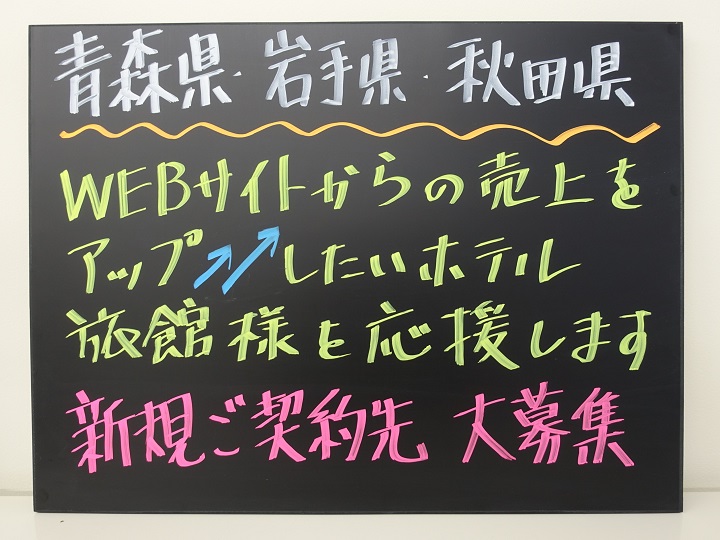 青森県・岩手県・秋田県
WEBサイトからの売上を
アップ↗↗したいホテル
旅館様を応援します
新規ご契約先 大募集